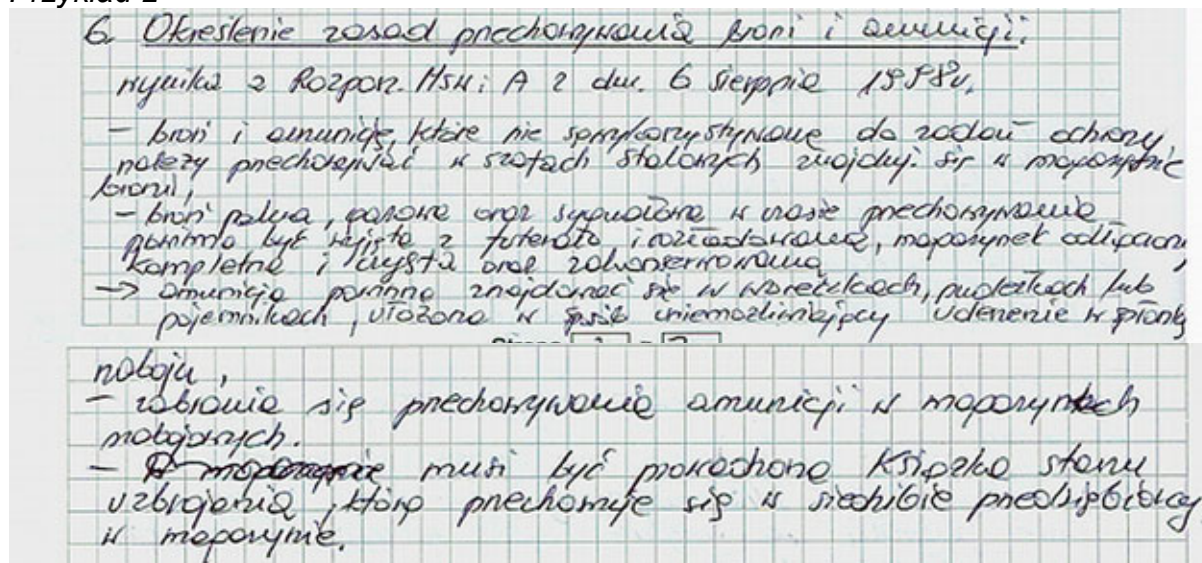 Przykład 2
6. Określenie zasad przechowywania broni i amunicji.
wynika z Rozporz. MSW i A z dn. 6 sierpnia 1998r.
- broń i amunicję, które nie są wykorzystywane do zadań ochrony
należy przechowywać w szafach stalowych znajduj. się w magazynie
broni,
- broń palna, gazowa oraz sygnałowa w czasie przechowywania
powinna być wyjęta z futerału i rozładowana, magazynek odłączon,
kompletna i czysta oraz zakonserwowana
-> amunicja powinna znajdować się w woreczkach, pudełkach lub
pojemnikach, ułożona w sposób uniemożliwiający uderzenie w spłonkę
Strona
naboju,
- zabrania się przechowywania amunicji w magazynkach
nabojowych.
- W magazynie musi być prowadzona Książka stanu
uzbrojenia, którą przechowuje się w siedzibie przedsiębiorcy
w magazynie.